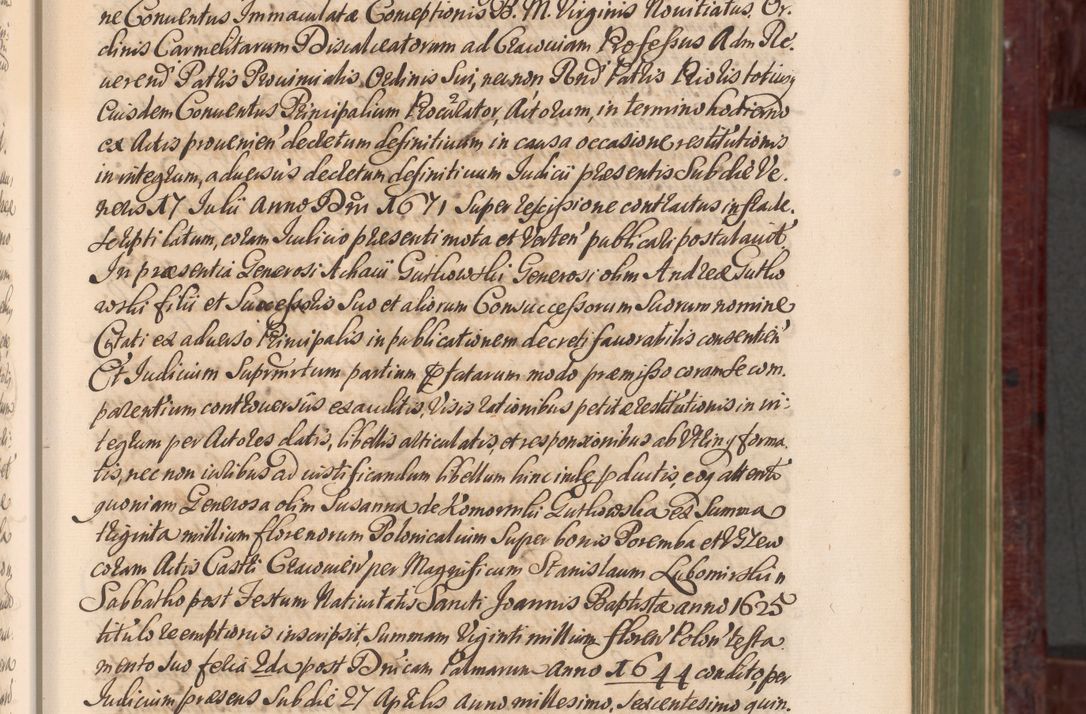 ne Conventus Immaculatæ Conceptionis B. M. Virginis Novitiatus Or.
dinis Carmelitarum Discalceatorum ad Cracoviam Professus Adm Re.
verend' Patris Provincialis Ordinis Sui, necnon Rnd' Patris Prioris totiusq
Eiusdem Conventus Principalium Procurator, Actorum, in termino hodierno
ex Actis provenien' decretum definitivum in causa occasione restitutionis
in integrum, adversus decretum definitivum Iudicii præsentis Sub die Ve.
neris 17 Iulii Anno Dni 1671 Super rescissione contractus infrade.
scripti latum, coram Iudicio præsenti mota et verten' publicari postulavit,
In præsentia Generosi Achacii Gutkowski Generosi olim Andreæ Gutko
wski filii et Successoris Suo et aliorum Consuccessorum Suorum nomine
Citati ex adverso Principalis in publicationem decreti favorabilis consentien'
Et Iudicium Suprmrtum partium pfatarum modo præmisso coram se com.
parentium controversiis exauditis, Visis rationibus petitæ restitutionis in in:
tegrum per Actores datis, libellis articulatis, et responsionibus ab utrinq forma
tis, nec non iuribus ad iustificandum libellum hinc inde pductis eoq attento
quoniam Generosa olim Susanna de Komornhi Gutkowska ex Summa
triginta millium florenorum Polonicalium Super bonis Poremba et
coram Actis Castri Cracovien' per Magnificum Stanislaum Lubomirski
Sabbatho post Festum Nativitatis Sancti Joannis Baptistæ anno 1625
titulo reemptionis inscripsit Summam Viginti millium floren' Polon' testa
mento suo feria 2da post Dnicam Palmarum Anno 1644 condito, per
Iudicium præsens Sub die 27 Aprilis anno millesimo, Sexcentesimo quin.